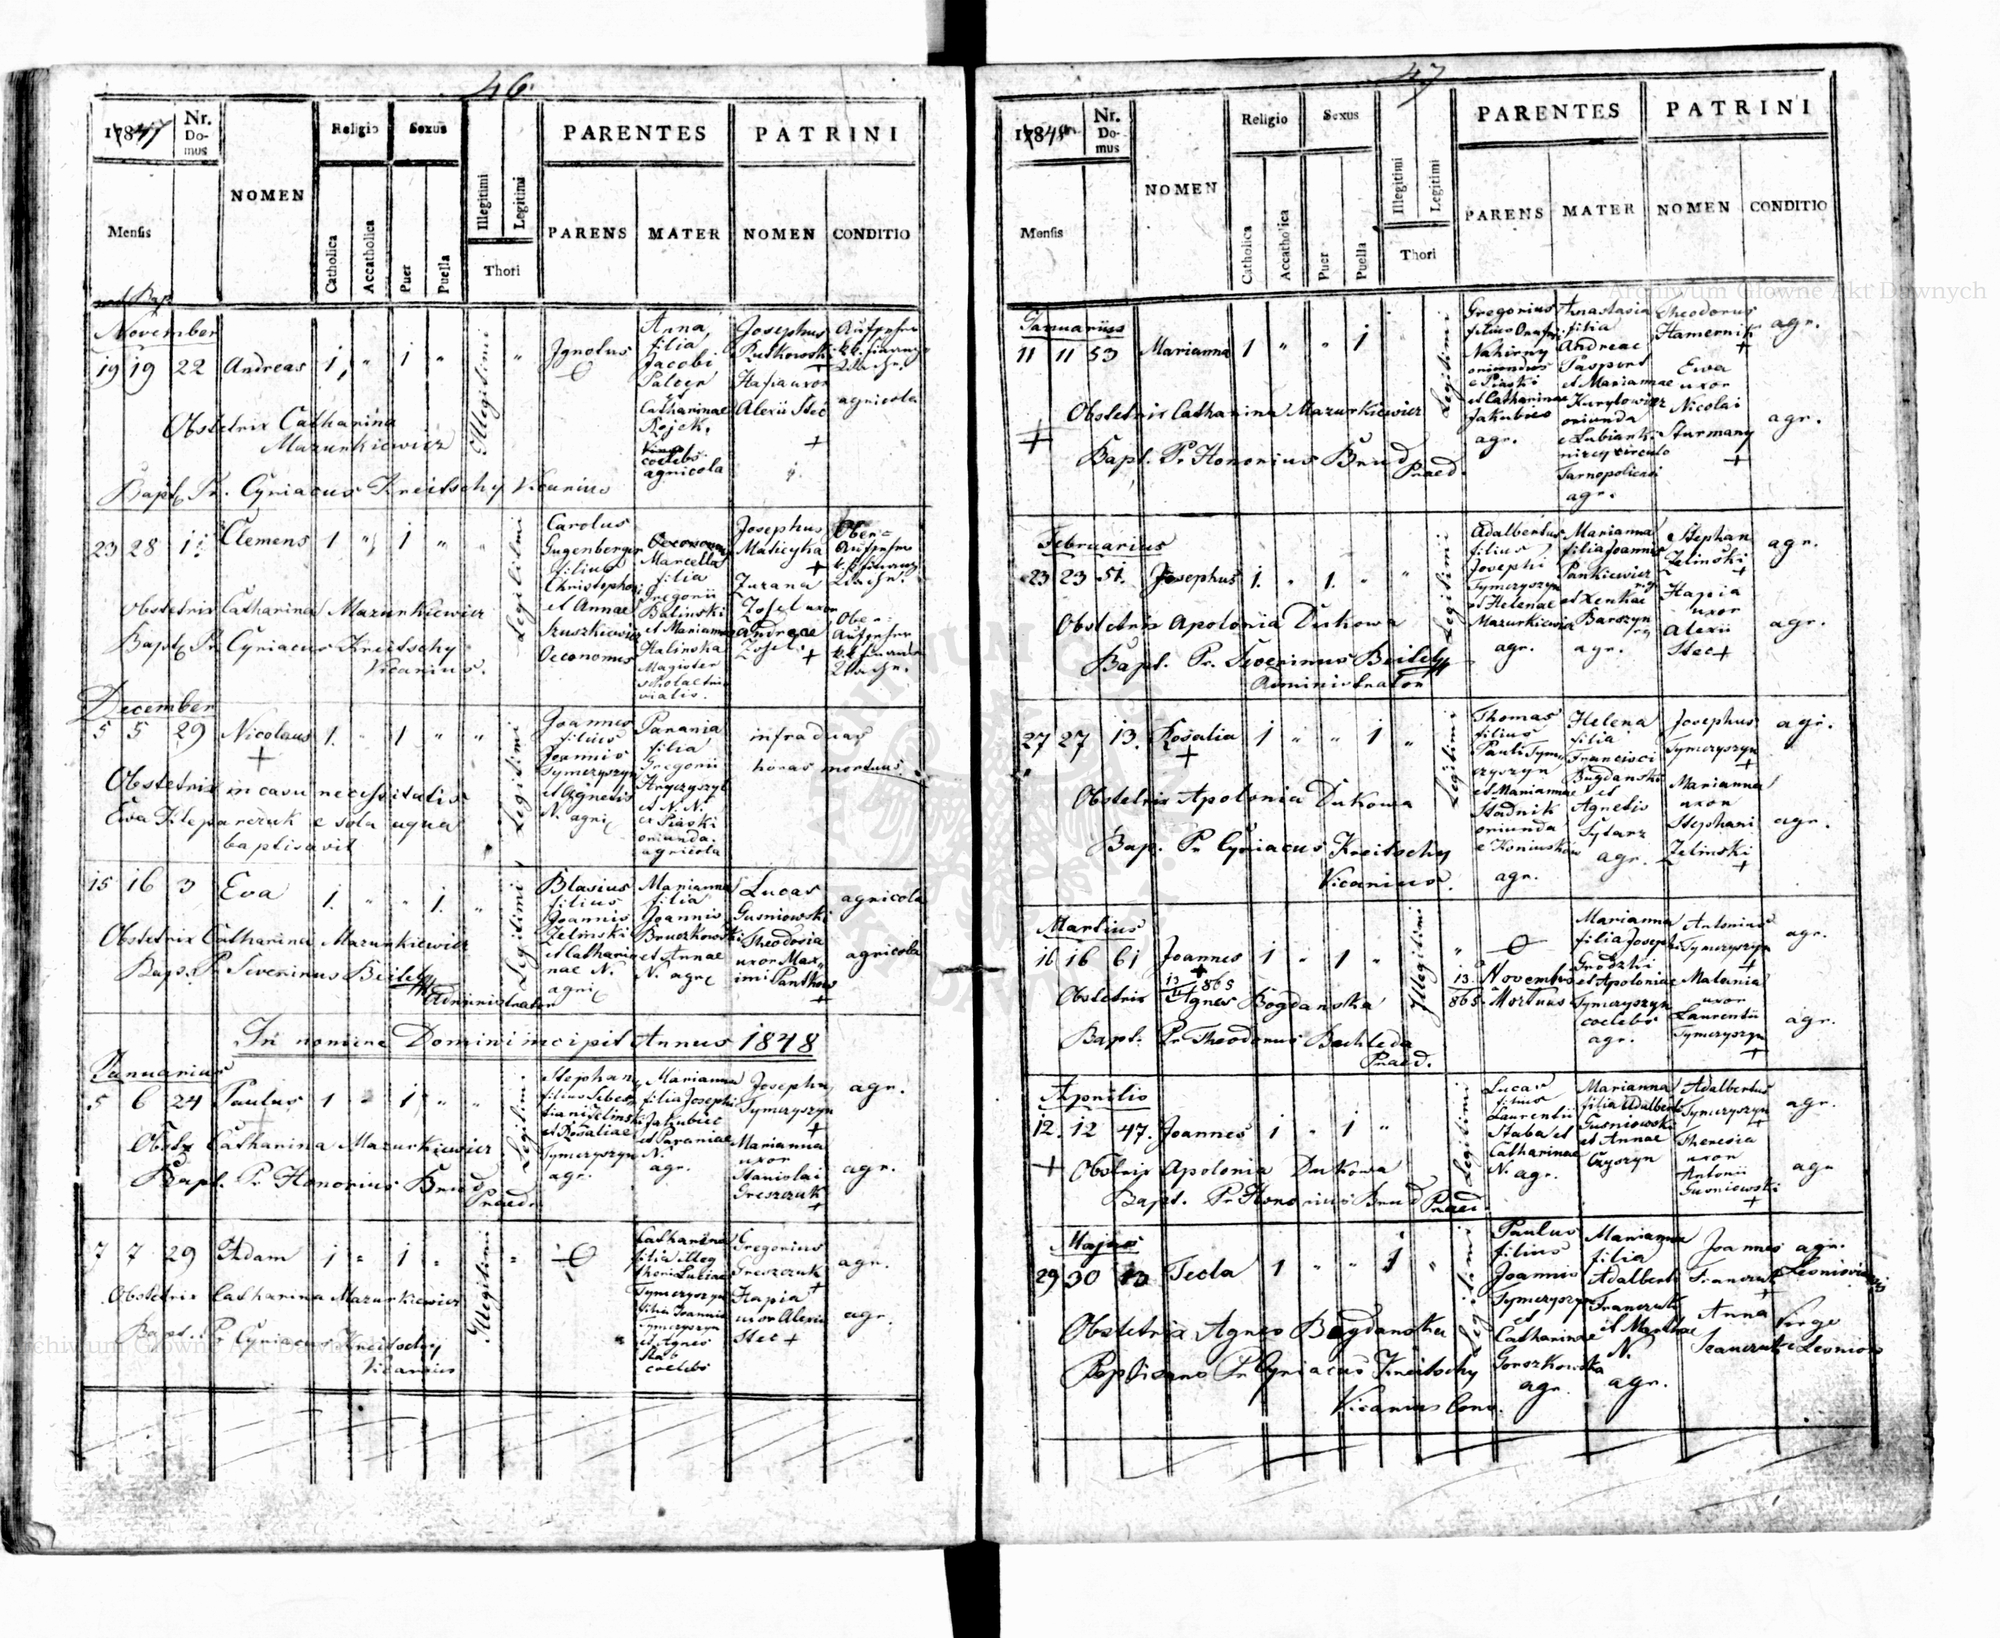 46.
1847
Nr. Domus
NOMEN
Religio
Sexus
PARENTES
PATRINI
Mensis
Catholica
Accatholica
Puer
Puella
Illegitimi
Legitimi
Thori
PARENS
MATER
NOMEN
CONDITIO
November
19 19 22 Andreas 1 " 1 " Illegitimi "
Ignotus
Anna
filia
Jacobi
et
Catharinae
Rojek
coelebs
agricola
Josephus
Rutkowski
Hapia uxor
Alexii Stec
agricola
Obstetrix Catharina
Mazurkiewicz
Bapt. Pr. Cyriacus Kreitschy Vicarius
23 28 11 Clemens 1 " 1 " " Legitimi
Carolus
Gugenberger
filius
Christophori
et Annae
Szuszkiewicz
Oeconomus
Marcella
filia
Gregorii
Balinski
et Marianna
Kalinska
Magister
scholae tri-
vialis.
Josephus
Zuzana
Zofel uxor
Andreae
Zofel
Ober-
Aufseher
Ober-
Aufseher
Obstetrix Catharina Mazurkiewicz
Bapt. Pr. Cyriacus Kreitschy
Vicarius.
December
5 5 29 Nicolaus 1. " 1 " " Legitimi
Joannes
filius
Joannis
Tymczyszyn
et Agnetis
N. agri
Parania
filia
Gregorii
Hryczyszyn
et N. N.
ex Piaski
oriunda.
agricola
infra duas
horas mortuus.
Obstetrix in casu necessitatis
Ewa Kleparczuk e sola aqua
baptisavit
15 16 3 Eva 1. " " 1. " Legitimi
Blasius
filius
Joannis
Zelinski
et Cathari
nae N.
agri
Marianna
filia
Joannis
Bruczkowski
et Annae
N. agr
Lucas
Gusniowski
Theodosia
uxor Max
imi Pankow
agricola
agricola
Obstetrix Catharina Mazurkiewicz
Bapt. Pr. Severinus Beitely
Administrator
In nomine Domini incipit Annus 1848
Januarius
5 6 24 Paulus 1 " 1 " " Legitimi
Stephan
filius Sebes
tiani Zelinski
et Rosaliae
Tymczyszyn
agr.
Marianna
filia Josephi
Jakubiec
et Paraniae
N.
agr.
Josephus
Tymczyszyn
Marianna
uxor
Stanislai
Greszczuk
agr.
agr.
Obstx Catharina Mazurkiewicz
Bapt. Pr. Honorius Brud
Praed.
7 7 29 Adam 1 " 1 " " Illegitimi
Catharina
filia illeg
thori Luciae
Tymczyszyn
filia Joannis
Tymczyszyn
et Agnes
Stab
coelebs
Gregorius
Greszczuk
Hapia
uxor Alexii
Stec
agr.
agr.
Obstetrix Catharina Mazurkiewicz
Bapt. Pr. Cyriacus Kreitschy
Vicarius
47
1848
Nr. Domus
NOMEN
Religio
Sexus
PARENTES
PATRINI
Mensis
Catholica
Accatholica
Puer
Puella
Illegitimi
Legitimi
Thori
PARENS
MATER
NOMEN
CONDITIO
Januarius
11 11 53 Marianna 1 " " 1 " Legitimi
Gregorius
filius Onufri
Nahirny
oriundus
e Piaski
et Catharinae
Jakubiec
agr.
Anastasia
filia
Andreae
Paszport
et Mariannae
Kurylowicz
oriunda
e Lubianki
nizcy circulo
Tarnopoliensi
agr.
Theodorus
Hamernik
Ewa
uxor
Nicolai
Sturmany
agr.
agr.
Obstetrix Catharina Mazurkiewicz
Bapt. Pr. Honorius Brud
Praed.
Februarius
23 23 51. Josephus 1. " 1. " " Legitimi
Adalbertus
filius
Josephi
Tymczyszyn
et Helenae
Mazurkiewicz
agr.
Marianna
filia Joannis
Pankiewicz
et Xenkae
Barszyn
agr.
Stephan
Zelinski
Hapia
uxor
Alexii
Stec
agr.
agr.
Obstetrix Apolonia Dukowa
Bapt. Pr. Severinus Beitely
Administrator
27 27 13. Rosalia 1 " " 1 " Legitimi
Thomas
filius
Pauli Tym
czyszyn
et Mariannae
Stadnik
oriunda
e Koniuszkow
agr.
Helena
filia
Francisci
Bugdanski
et
Agnetis
Sytarz
agr.
Josephus
Tymczyszyn
Marianna
uxor
Stephani
Zelinski
agr.
agr.
Obstetrix Apolonia Dukowa
Bap. Pr. Cyriacus Kreitschy
Vicarius.
Martius
16 16 61 Joannes 1 " 1 " Illegitimi "
13/11 865
13. Novembr
865. Mortuus
Marianna
filia Josephi
Grodzki
et Apoloniae
Tymczyszyn
coelebs
agr.
Antonius
Tymczyszyn
Malania
uxor
Laurentii
Tymczyszyn
agr.
agr.
Obstetrix Agnes Bogdanska
Bapt. Pr. Theodorus Bachleda
Praed.
Aprilis
12. 12 47. Joannes 1 " 1 " Legitimi
Lucas
filius
Laurentii
Staba et
Catharinae
N. agr.
Marianna
filia Adalberti
Gusniowski
et Annae
Czyszyn
Adalbertus
Tymczyszyn
Theresia
uxor
Antonii
Gusniewski
agr.
agr
Obstrix Apolonia Dukowa
Bapt. Pr. Honorius Brud Praed.
Majus
29 30 13 Tecla 1 " " 1 " Legitimi
Paulus
filius
Joannis
Tymczyszyn
et
Catharinae
Gorszkowska
agr.
Marianna
filia
Adalberti
Franczuk
et Marthae
N.
agr.
Joannes agr.
Franczuk
Anna Virgo
Franczuk e Leoniow
Obstetrix Agnes Bogdanska
Baptisans Pr Cyriacus Kreitschy
Vicarius Conv.
Archiwum Główne Akt Dawnych
Archiwum Główne Akt Dawnych